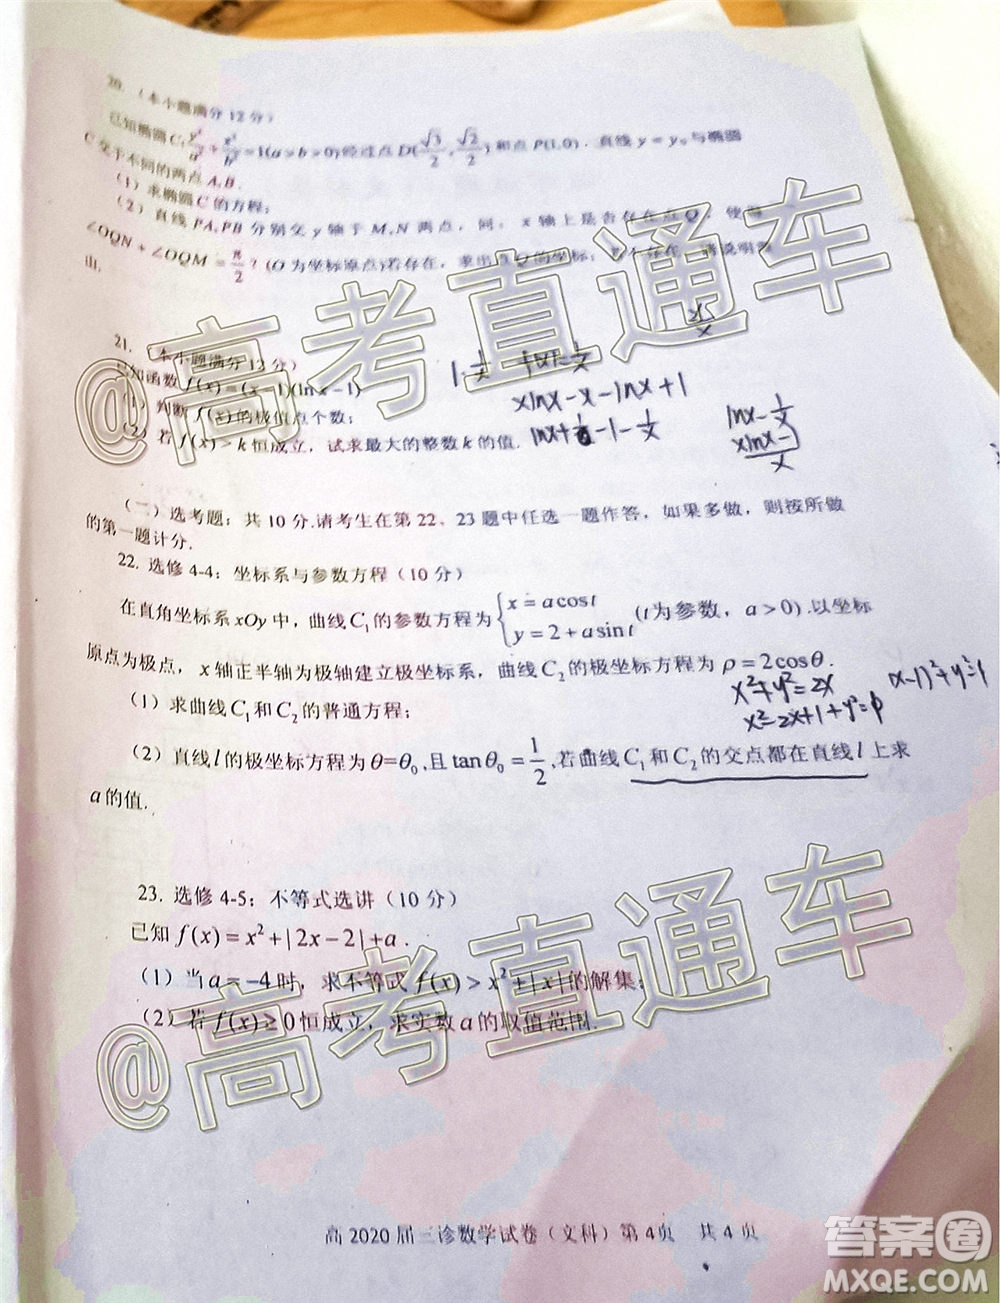 20. (本小题满分12分)
已知椭圆C: y²/a² + x²/b² =1(a>b>0)经过点D(√3/2, √2/2)和点P(1,0). 直线y=y₀与椭圆
C交于不同的两点A,B.
(1) 求椭圆C的方程;
(2) 直线PA,PB分别交y轴于M,N两点, 问: x轴上是否存在点Q, 使得
∠OQN+∠OQM=π/2? (O为坐标原点)若存在, 求出点Q的坐标; 若不存在, 请说明理
由.
21. (本小题满分12分)
已知函数f(x)=(x-1)(lnx-1)
(1) 判断f(x)的极值点个数;
(2) 若f(x)>k恒成立, 试求最大的整数k的值.
xlnx-x-lnx+1
lnx-1/x
xlnx-1
x
(二) 选考题: 共10分.请考生在第22、23题中任选一题作答, 如果多做, 则按所做
的第一题计分.
22. 选修4-4: 坐标系与参数方程(10分)
在直角坐标系xOy中, 曲线C₁的参数方程为{x=acost y=2+asint (t为参数, a>0). 以坐标
原点为极点, x轴正半轴为极轴建立极坐标系, 曲线C₂的极坐标方程为ρ=2cosθ.
x²+y²=2x
(x-1)²+y²=1
(1) 求曲线C₁和C₂的普通方程;
(2) 直线l的极坐标方程为θ=θ₀,且tanθ₀=1/2,若曲线C₁和C₂的交点都在直线l上求
a的值.
23. 选修4-5: 不等式选讲(10分)
已知f(x)=x²+|2x-2|+a.
(1) 当a=-4时, 求不等式f(x)>x²+|x|的解集;
(2) 若f(x)≥0恒成立, 求实数a的取值范围.
高2020届三诊数学试卷(文科) 第4页 共4页
@高考直通车
@高考直通车
答案圈
MXQE.COM